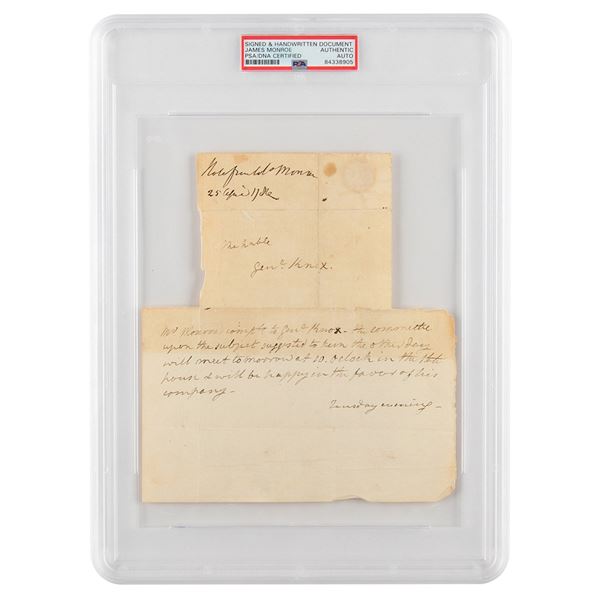 SIGNED & HANDWRITTEN DOCUMENT
JAMES MONROE AUTHENTIC
PSA/DNA CERTIFIED AUTO
PSA 84338905
Note from Colo Monroe
25 April 1786
The honble
Genl. Knox.
Mr. Monroe's compts to Genl. Knox - the committee
upon the subject suggested to him the other day
will meet tomorrow at 10. oclock in the
house & will be happy in the favor of his
company -
Tuesday evening -